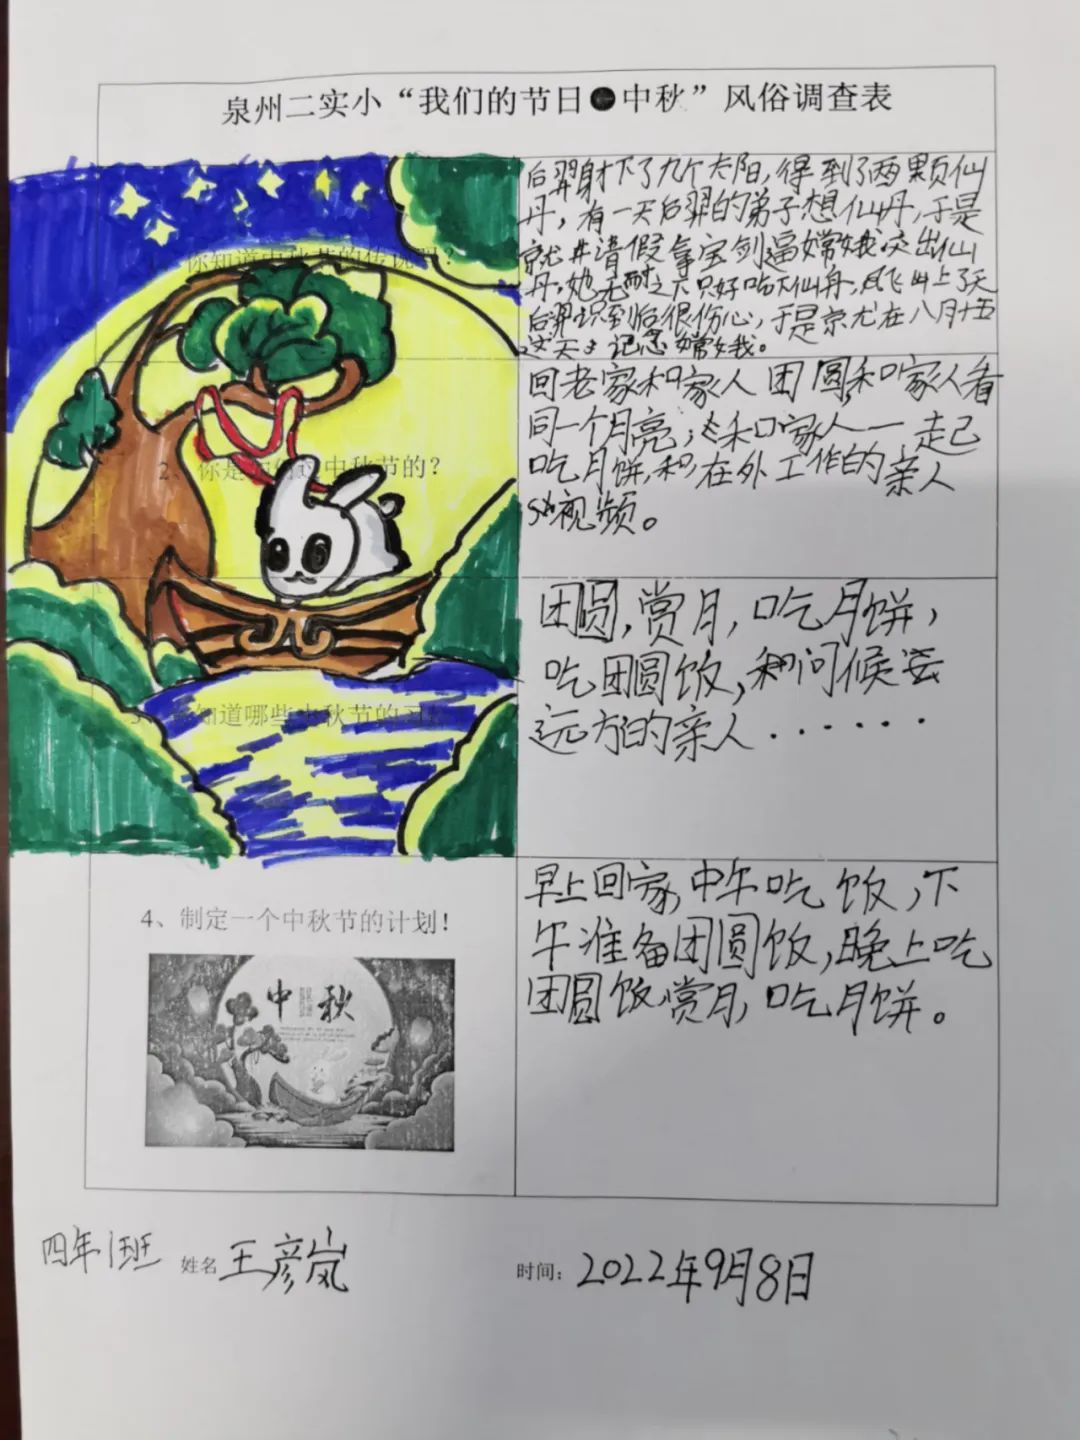 泉州二实小“我们的节日●中秋”风俗调查表
1、你知道中秋节的传说吗？
后羿射下了九个太阳，得到了两颗仙
丹，有一天后羿的弟子想仙丹，于是
就 请假拿宝剑逼嫦娥交出仙
丹。她无耐之下只好吃下仙丹，飞上了天
后羿 到后很伤心，于是 在八月十五
这天 记念嫦娥。
2、你是 过中秋节的？
回老家和家人团圆，和家人看
同一个月亮，和家人一起
吃月饼，和在外工作的亲人
视频。
3、你知道哪些中秋节的习
团圆，赏月，吃月饼，
吃团圆饭，和问候
远方的亲人······
4、制定一个中秋节的计划！
中秋
早上回家，中午吃饭，下
午准备团圆饭，晚上吃
团圆饭赏月，吃月饼。
四年1班 姓名 王彦岚 时间：2022年9月8日